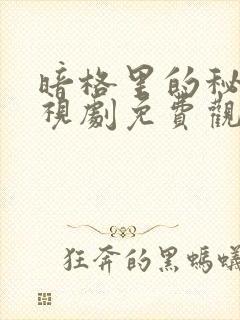 暗格里的秘
視劇免費觀
狂奔的黑螞蟻